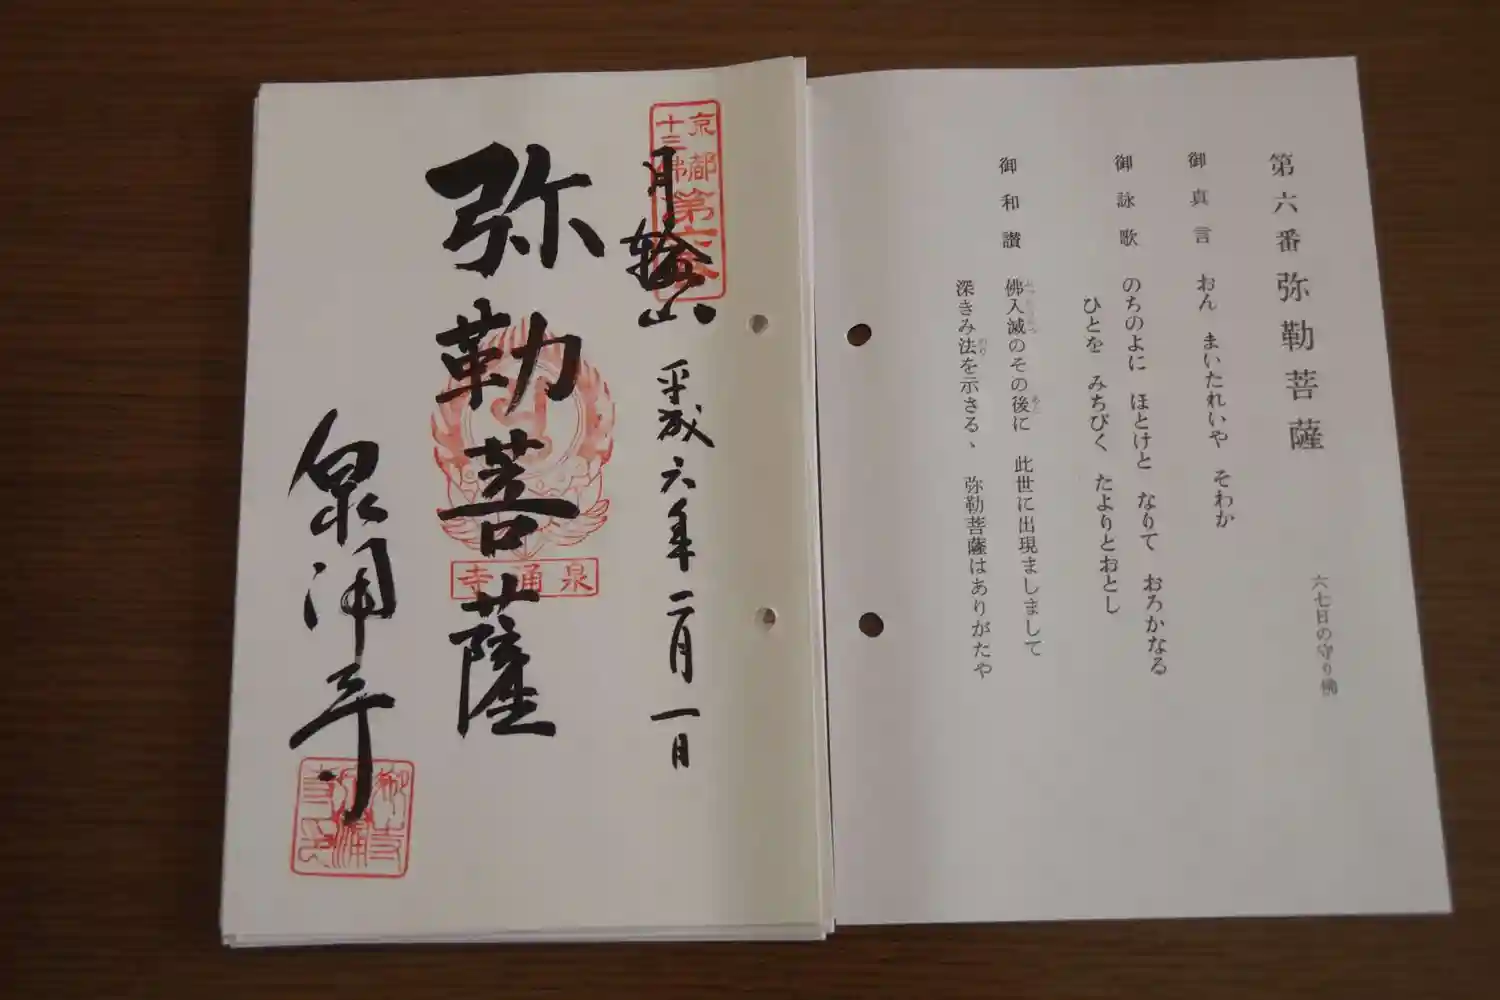 第六番 弥勒菩薩
六七日の守り佛
御真言 おん まいたれいや そわか
御詠歌 のちのよに ほとけと なりて おろかなる
ひとを みちびく たよりとおとし
御和讃 佛入滅のその後に 此世に出現ましまして
深きみ法を示さるゝ 弥勒菩薩はありがたや
京都
十三佛
第六番
月輪山 平成六年二月一日
弥勒菩薩
泉涌寺
泉涌寺